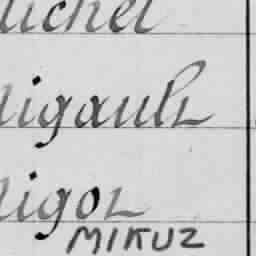 uichel
uigault
uigot
MIKUZ